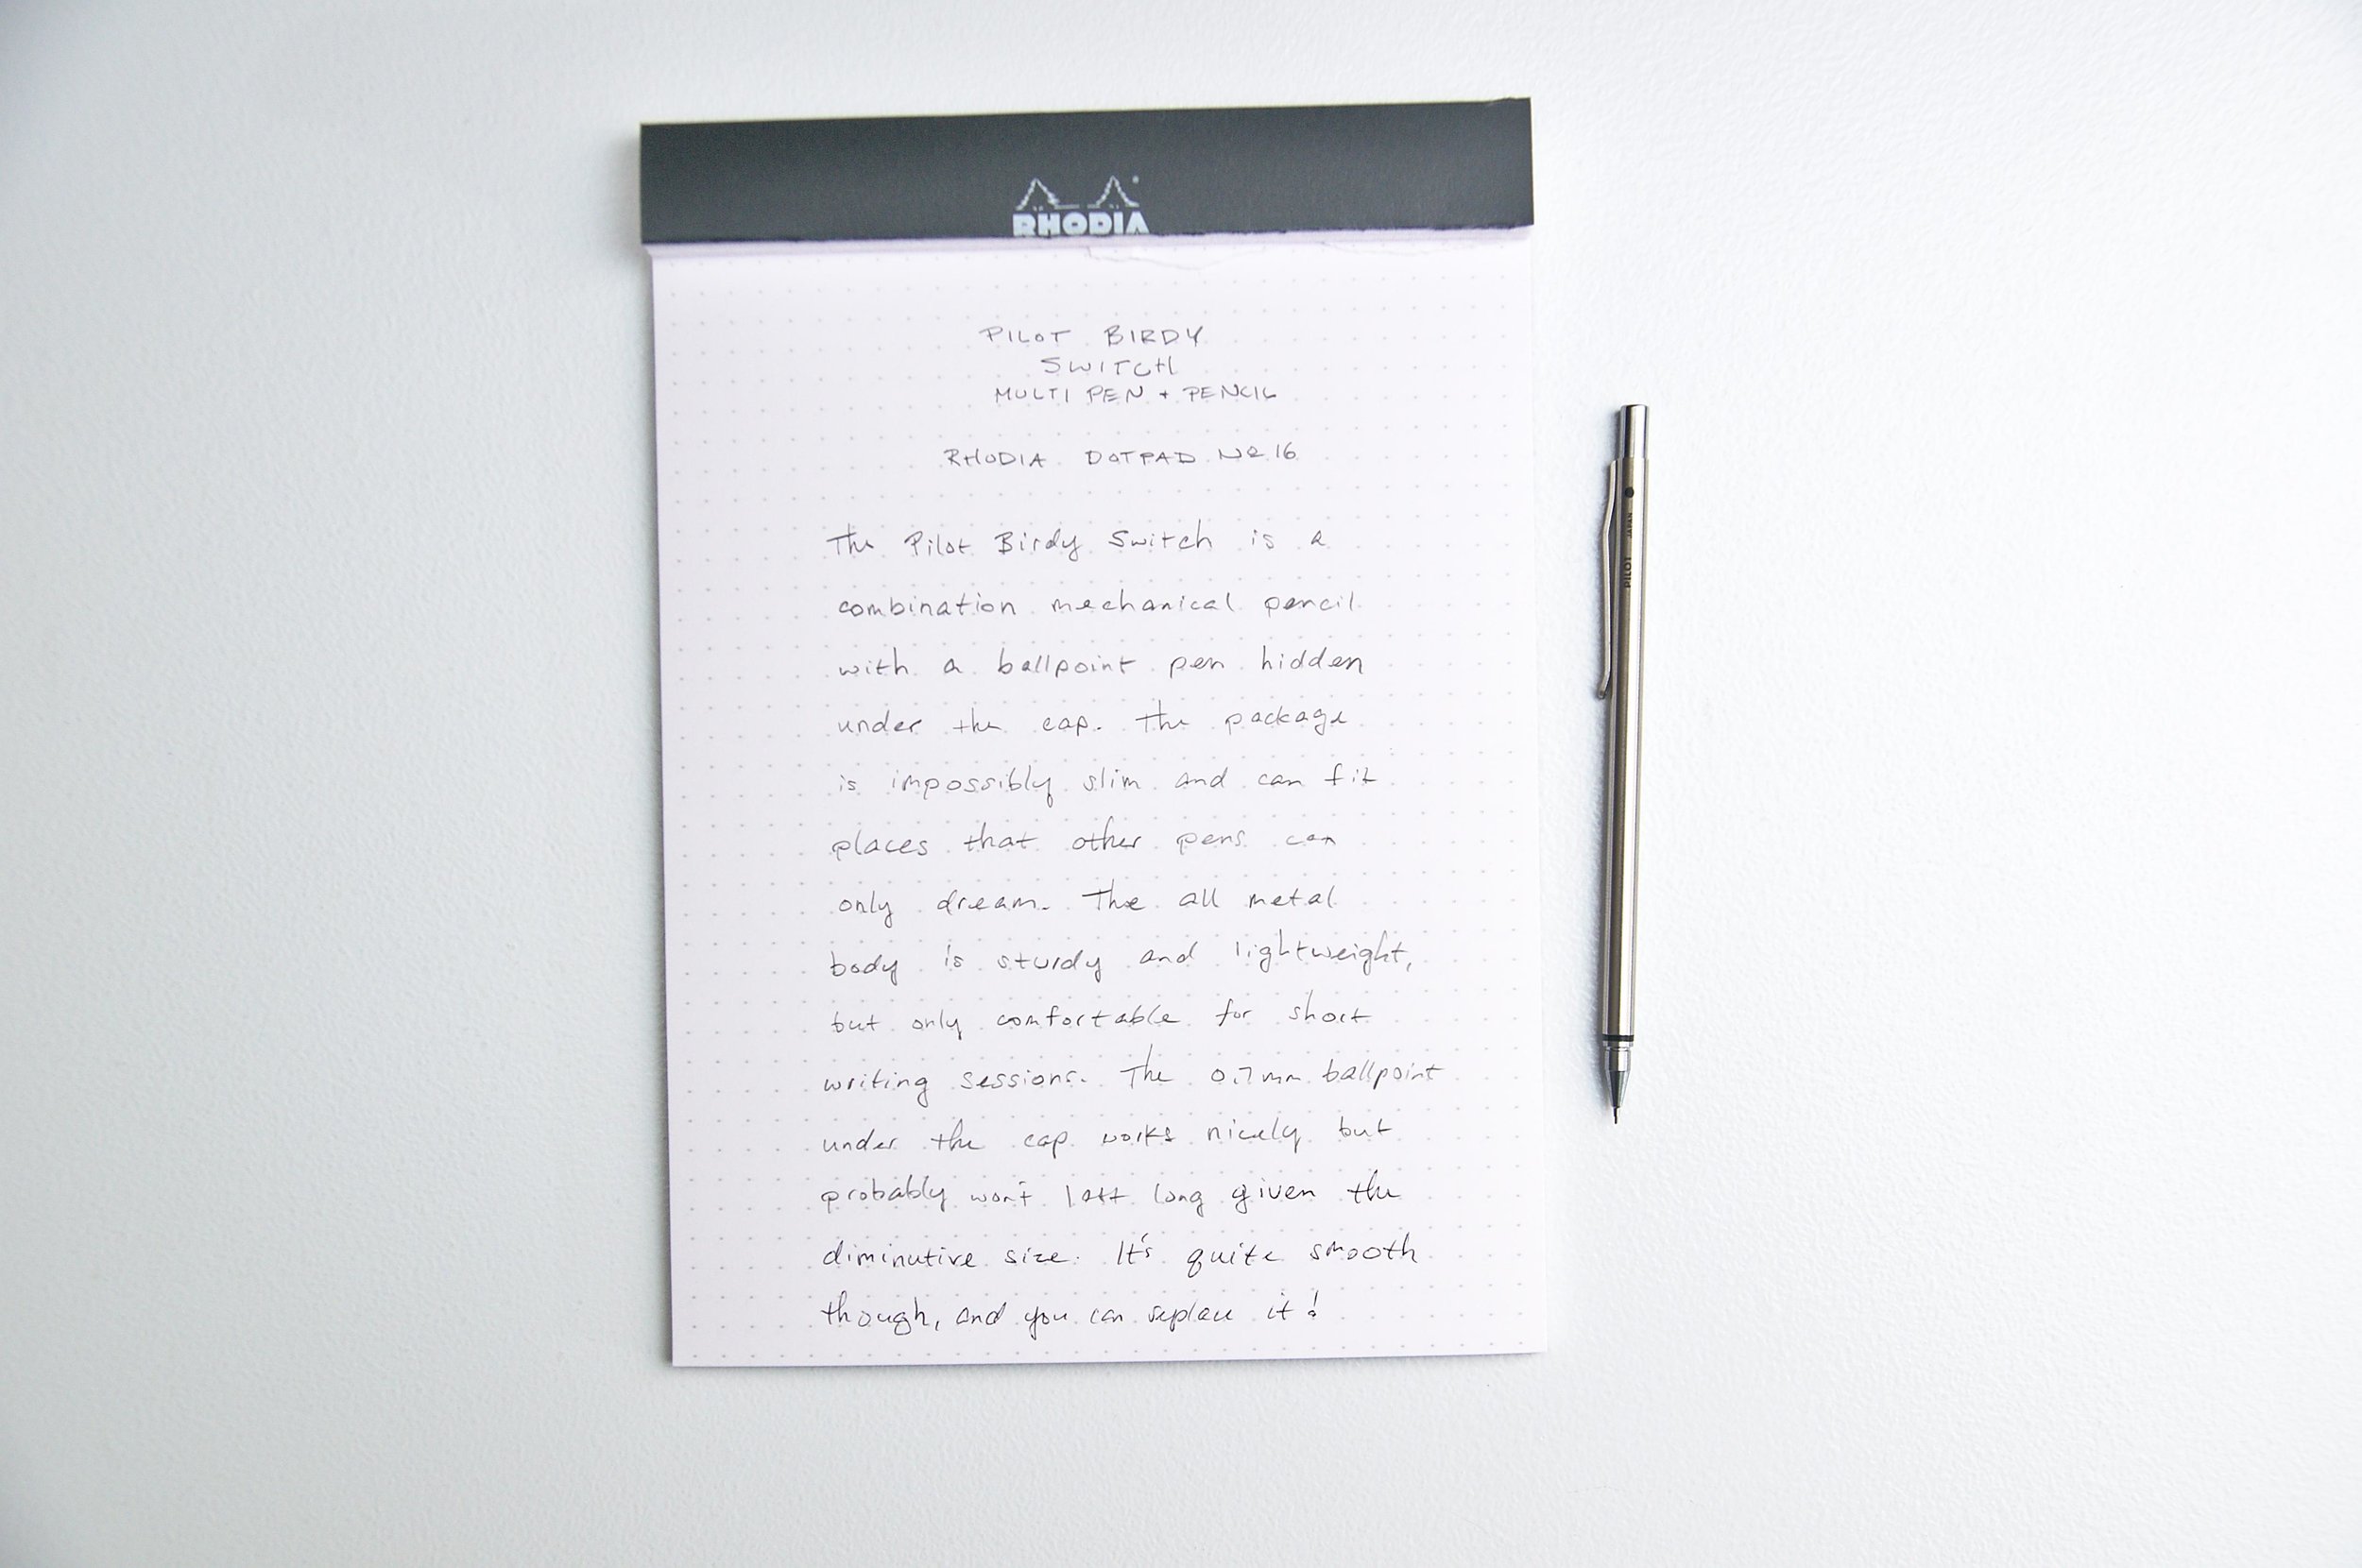 RHODIA
PILOT BIRDY
SWITCH
MULTI PEN + PENCIL
RHODIA DOTPAD No 16
The Pilot Birdy Switch is a
combination mechanical pencil
with a ballpoint pen hidden
under the cap. The package
is impossibly slim and can fit
places that other pens can
only dream. The all metal
body is sturdy and lightweight,
but only comfortable for short
writing sessions. The 0.7mm ballpoint
under the cap works nicely but
probably won't last long given the
diminutive size. It's quite smooth
though, and you can replace it!
PILOT JAPAN